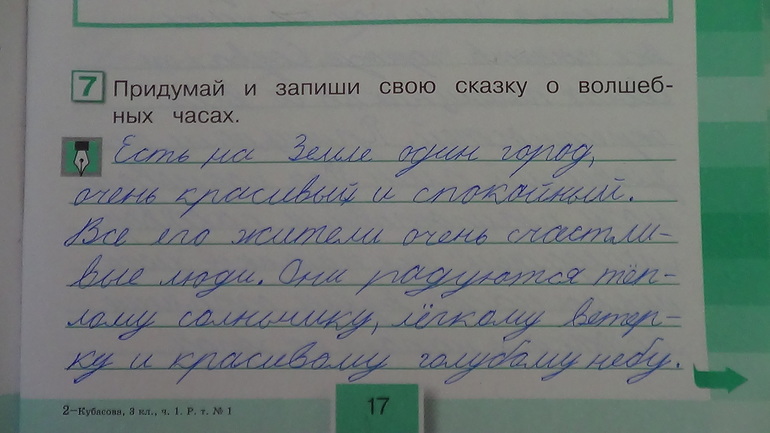 7 Придумай и запиши свою сказку о волшеб-
ных часах.
Есть на Земле один город,
очень красивый и спокойный.
Все его жители очень счастли-
вые люди. Они радуются тёп-
лому солнышку, лёгкому ветер-
ку и красивому голубому небу.
2–Кубасова, 3 кл., ч. 1. Р. т. № 1
17